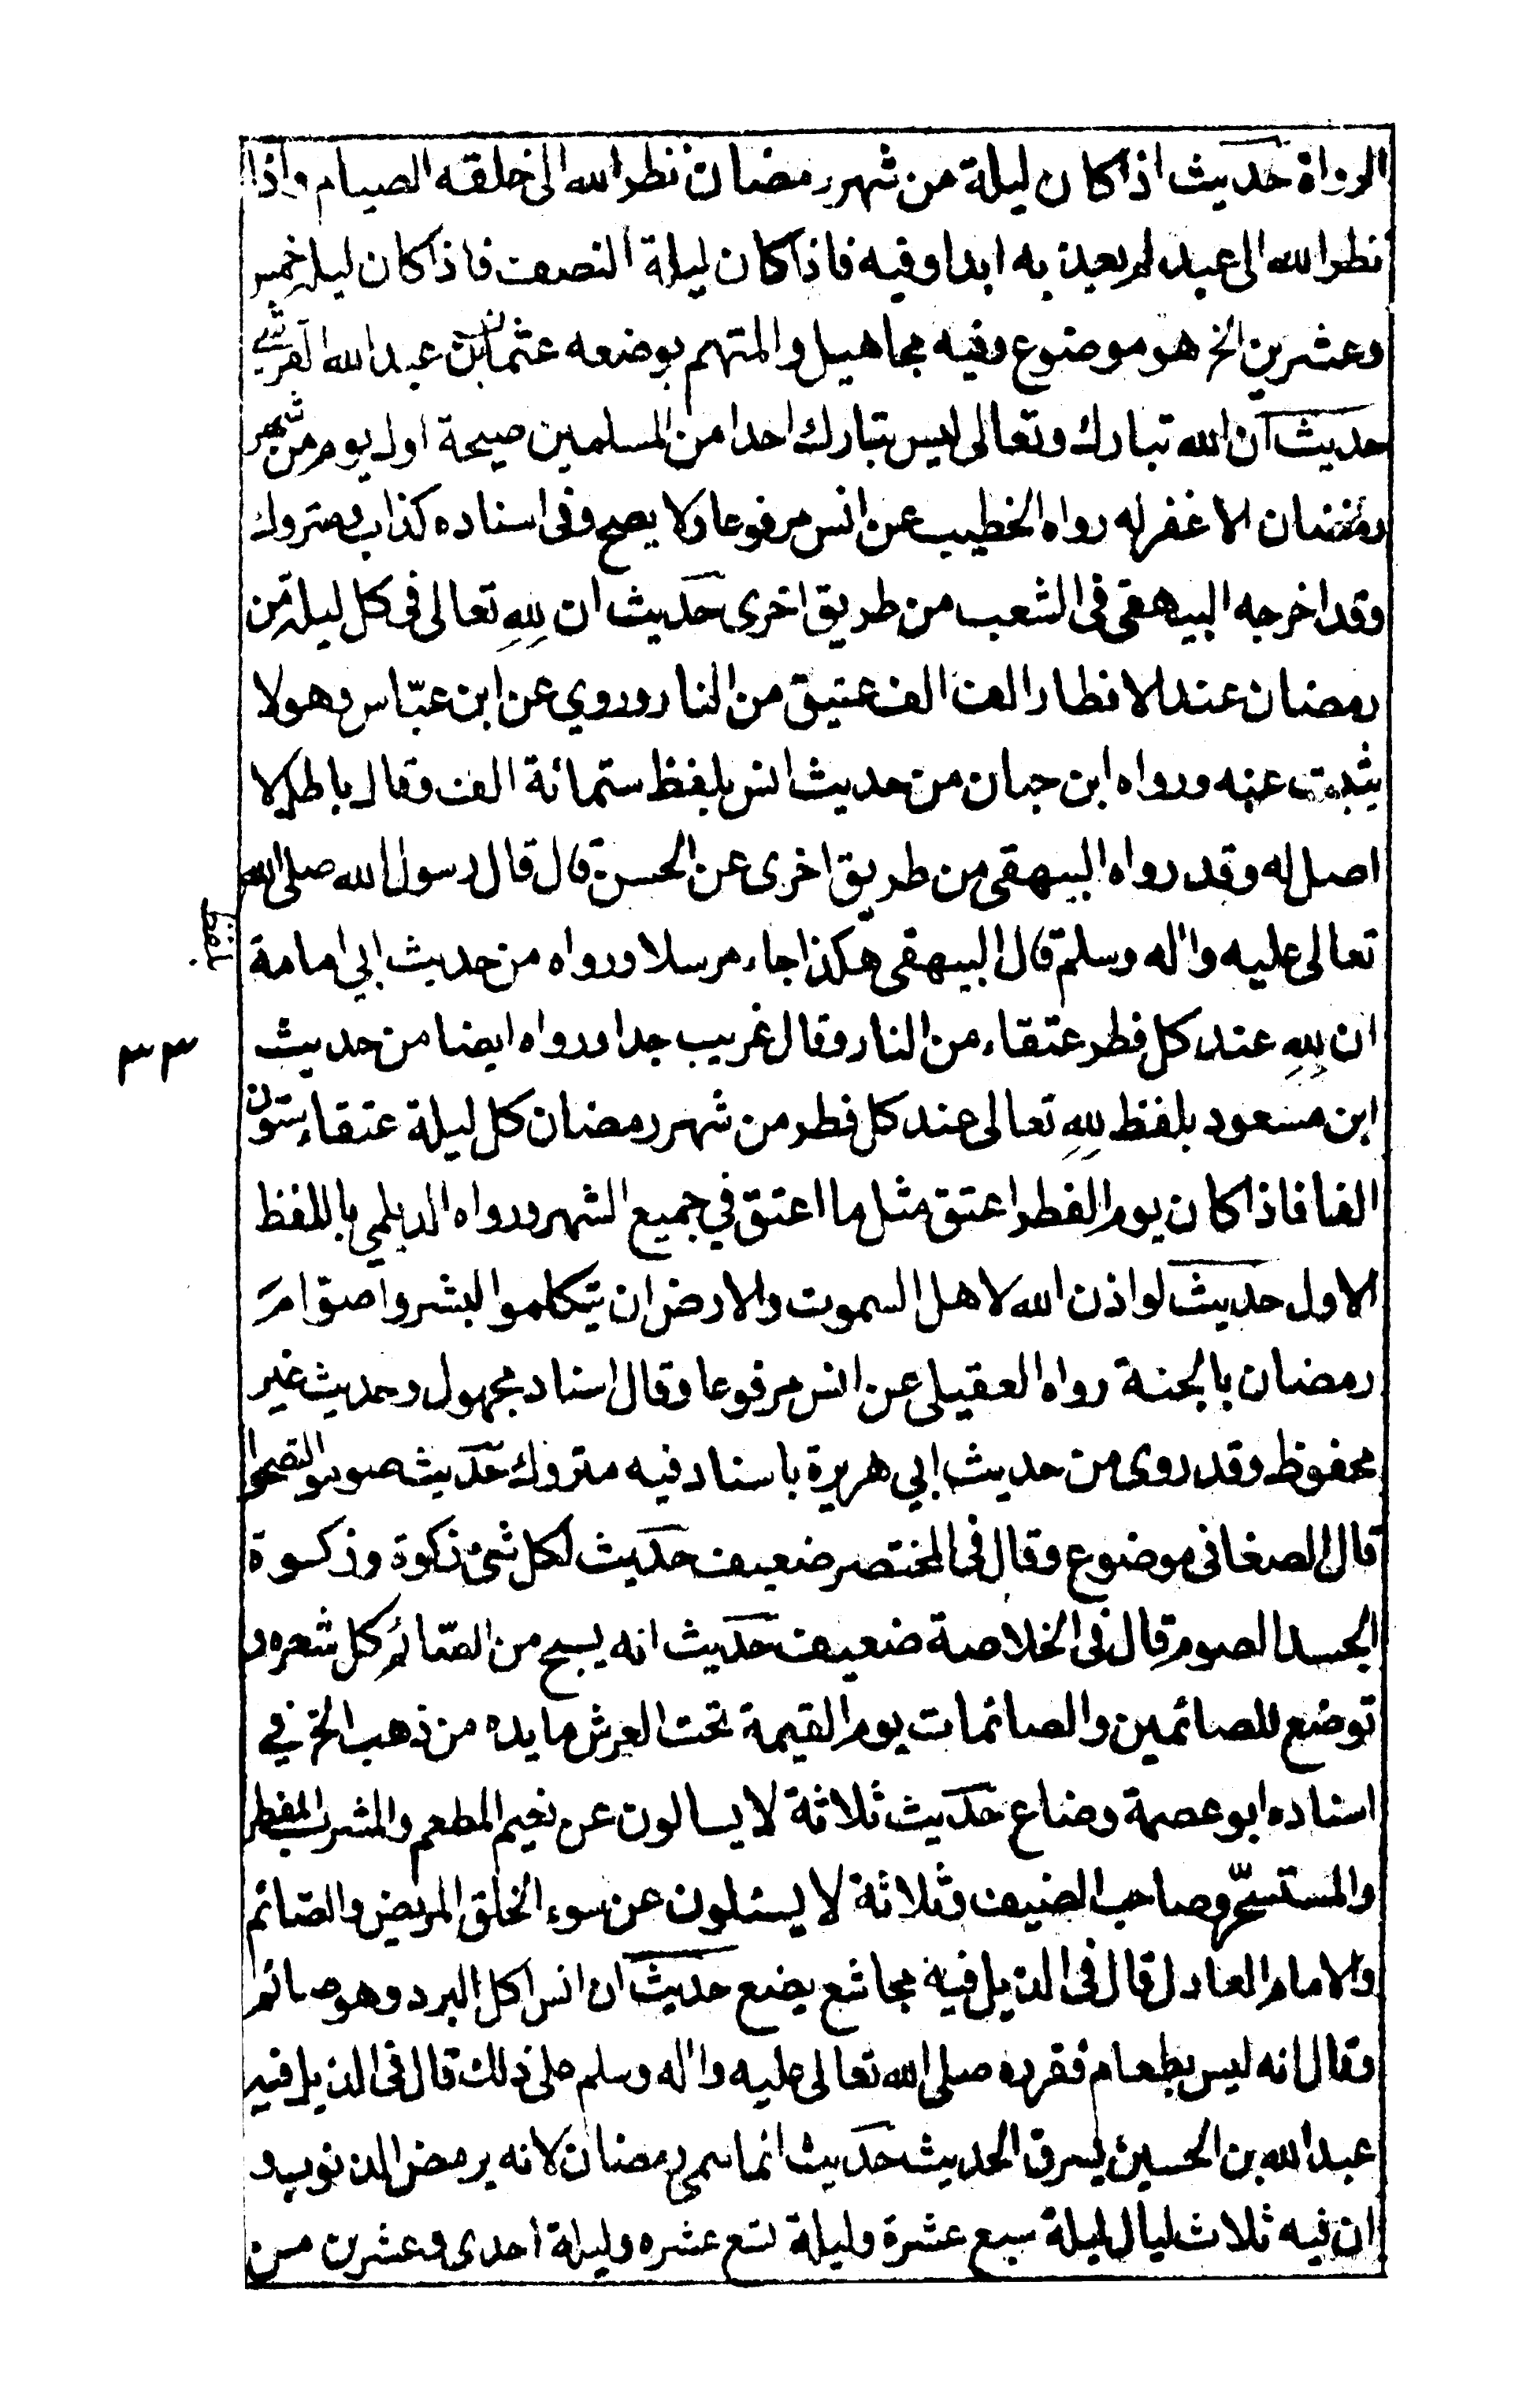 الرواة حديث اذا كان ليلة من شهر رمضان نظر الله الى خلقه الصيام واذا
نظر الله الى عبد لم يعذبه ابدا وفيه فاذا كان ليلة النصف فاذا كان ليلة خمس
وعشرين الخ هو موضوع وفيه مجاهيل والمتهم بوضعه عثمان بن عبد الله القرشي
حديث ان الله تبارك وتعالى ليس بتارك احدا من المسلمين صبيحة اول يوم من شهر
رمضان الا غفر له رواه الخطيب عن انس مرفوعا ولا يصح وفى اسناده كذاب ومتروك
وقد اخرجه البيهقى فى الشعب من طريق اخرى حديث ان لله تعالى فى كل ليلة من
رمضان عند الافطار الف الف عتيق من النار وروي عن ابن عباس وهو لا
يثبت عنه ورواه ابن حبان من حديث انس بلفظ ستمائة الف وقال باطل لا
اصل له وقد رواه البيهقى من طريق اخرى عن الحسن قال قال رسول الله صلى الله
تعالى عليه واله وسلم قال البيهقى هكذا جاء مرسلا ورواه من حديث ابي امامة
بلفظ
ان لله عند كل فطر عتقاء من النار وقال غريب جدا ورواه ايضا من حديث
٣٣
ابن مسعود بلفظ لله تعالى عند كل فطر من شهر رمضان كل ليلة عتقاء ستون
الفا فاذا كان يوم الفطر اعتق مثل ما اعتق في جميع الشهر ورواه الديلمي باللفظ
الاول حديث لو اذن الله لاهل السموت والارض ان يتكلموا لبشروا صوّام
رمضان بالجنة رواه العقيلى عن انس مرفوعا وقال اسناد مجهول وحديث غير
محفوظ وقد روى من حديث ابي هريرة باسناد فيه متروك حديث صوموا تصحوا
قال الصغانى موضوع وقال فى المختصر ضعيف حديث لكل شئ زكوة وزكوة
الجسد الصوم قال فى الخلاصة ضعيف حديث انه يسبح من الصّائم كل شعره و
توضع للصائمين والصائمات يوم القيمة تحت العرش مايده من ذهب الخ في
اسناده ابو عصمة وضاع حديث ثلاثة لا يسالون عن نعيم المطعم والمشرب المفطر
والمتسحّر وصاحب الضيف وثلاثة لا يسئلون عن سوء الخلق المريض والصّائم
والامام العادل قال فى الذيل فيه مجاشع يضع حديث ان انس اكل البرد وهو صائم
وقال انه ليس بطعام فقرره صلى الله تعالى عليه واله وسلم على ذلك قال فى الذيل فيه
عبد الله بن الحسين يسرق الحديث حديث انما سمي رمضان لانه يرمض الذنوب و
ان فيه ثلاث ليال ليلة سبع عشرة وليلة تسع عشره وليلة احدى وعشرين من